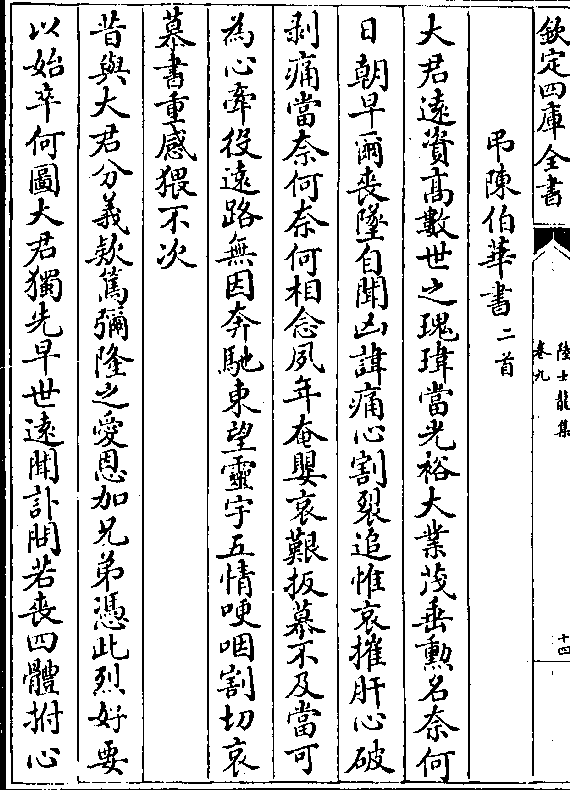 欽定四庫全書
陸士龍集
卷九
十四
弔陳伯華書二首
大君遠資高數世之瑰瑋當光裕大業茂垂勲名奈何
日朝早爾喪墜自聞凶諱痛心割裂追惟哀摧肝心破
剥痛當奈何奈何相念夙年奄嬰哀艱扳慕不及當可
為心牽役遠路無因奔馳東望靈宇五情哽咽割切哀
慕書重感猥不次
昔與大君分義款篤彌隆之愛恩加兄弟憑此烈好要
以始卒何圖大君獨先早世遠聞訃問若喪四體拊心